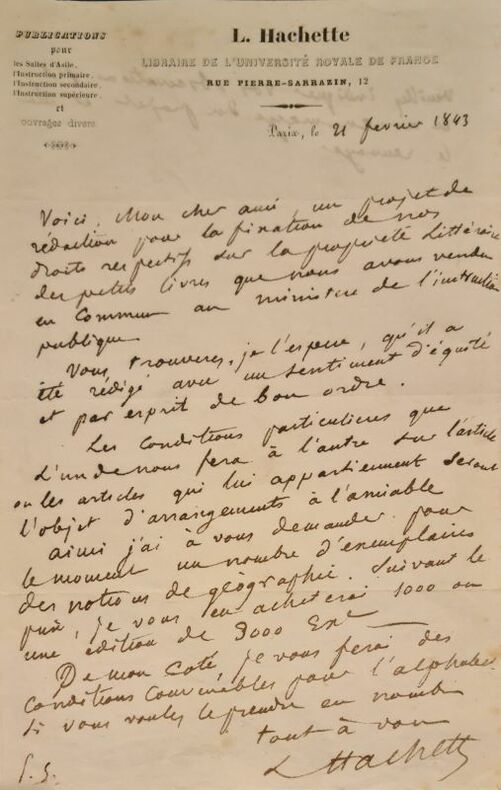 PUBLICATIONS
pour
les Salles d'Asile,
l'Instruction primaire,
l'Instruction secondaire,
l'Instruction supérieure,
et
ouvrages divers
L. Hachette
LIBRAIRE DE L'UNIVERSITÉ ROYALE DE FRANCE
RUE PIERRE-SARRAZIN, 12
Paris, le 21 fevrier 1843
Voici, Mon cher ami, un projet de
rédaction pour la fixation de nos
droits respectifs sur la propriété littéraire
des petits livres que nous avons vendu
en commun au ministere de l'instruction
publique
Vous trouverez, je l'espere, qu'il a
été rédigé avec un sentiment d'équité
et par esprit de bon ordre.
Les conditions particulieres que
l'un de nous fera à l'autre sur l'article
ou les articles qui lui appartiennent seront
l'objet d'arrangements à l'amiable
ainsi j'ai à vous demander pour
le moment un nombre d'exemplaires
des notions de géographie. Suivant le
prix, je vous en acheterai 1000 ou
une édition de 3000 Ex
De mon coté je vous ferai des
conditions convenables pour l'alphabet
si vous voulez le prendre en nombre
tout à vous
L Hachette